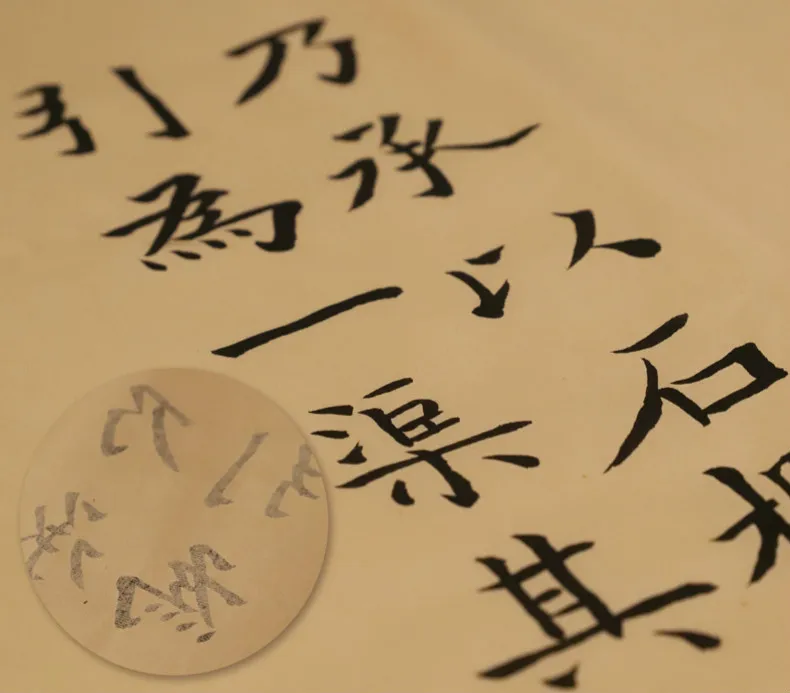 乃以石
引為一渠其